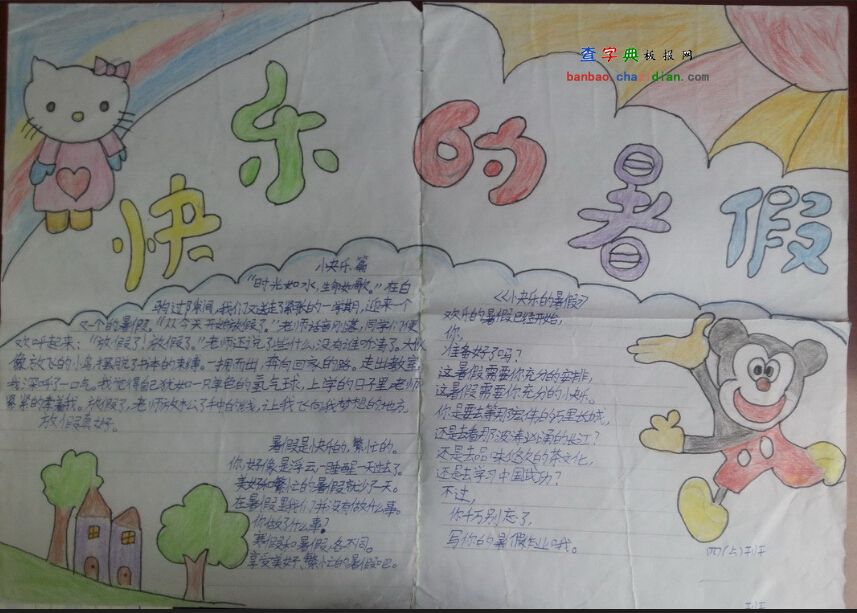 查字典板报网
banbao.cha dian.com
快乐的暑假
小快乐篇
"时光如水,生命如歌。"在白
驹过隙间,我们又送走了紧张的一学期,迎来一个
又一个的暑假。"从今天开始放假了。"老师话音刚落,同学们便
欢呼起来:"放假了!放假了。"老师还说了些什么,没有谁听清了。大伙
像放飞的小鸟,摆脱了书本的束缚。一拥而出,奔向回家的路。走出教室,
我深呼了一口气。我觉得自己犹如一只单色的氢气球,上学的日子里,老师
紧紧的牵着我。放假了,老师放松了手中的线,让我飞向我梦想的地方。
放假真好。
暑假是快乐的,繁忙的。
你好像是浮云,一睡画一天过去了。
美好和繁忙的暑假就少了一天。
在暑假里我们并没有做什么事。
你做了什么事?
寒假和暑假,各不同。
享受美好、繁忙的暑假吧。
《小快乐的暑假》
欢乐的暑假已经开始,
你,
准备好了吗?
这暑假需要你充分的安排,
这暑假需要你充分的快乐。
你是要去攀那宏伟的万里长城,
还是去看那波涛汹涌的长江?
还是去品味悠久的茶文化,
还是去学习中国武功?
不过,
你千万别忘了,
写你的暑假作业哦。
四(上)